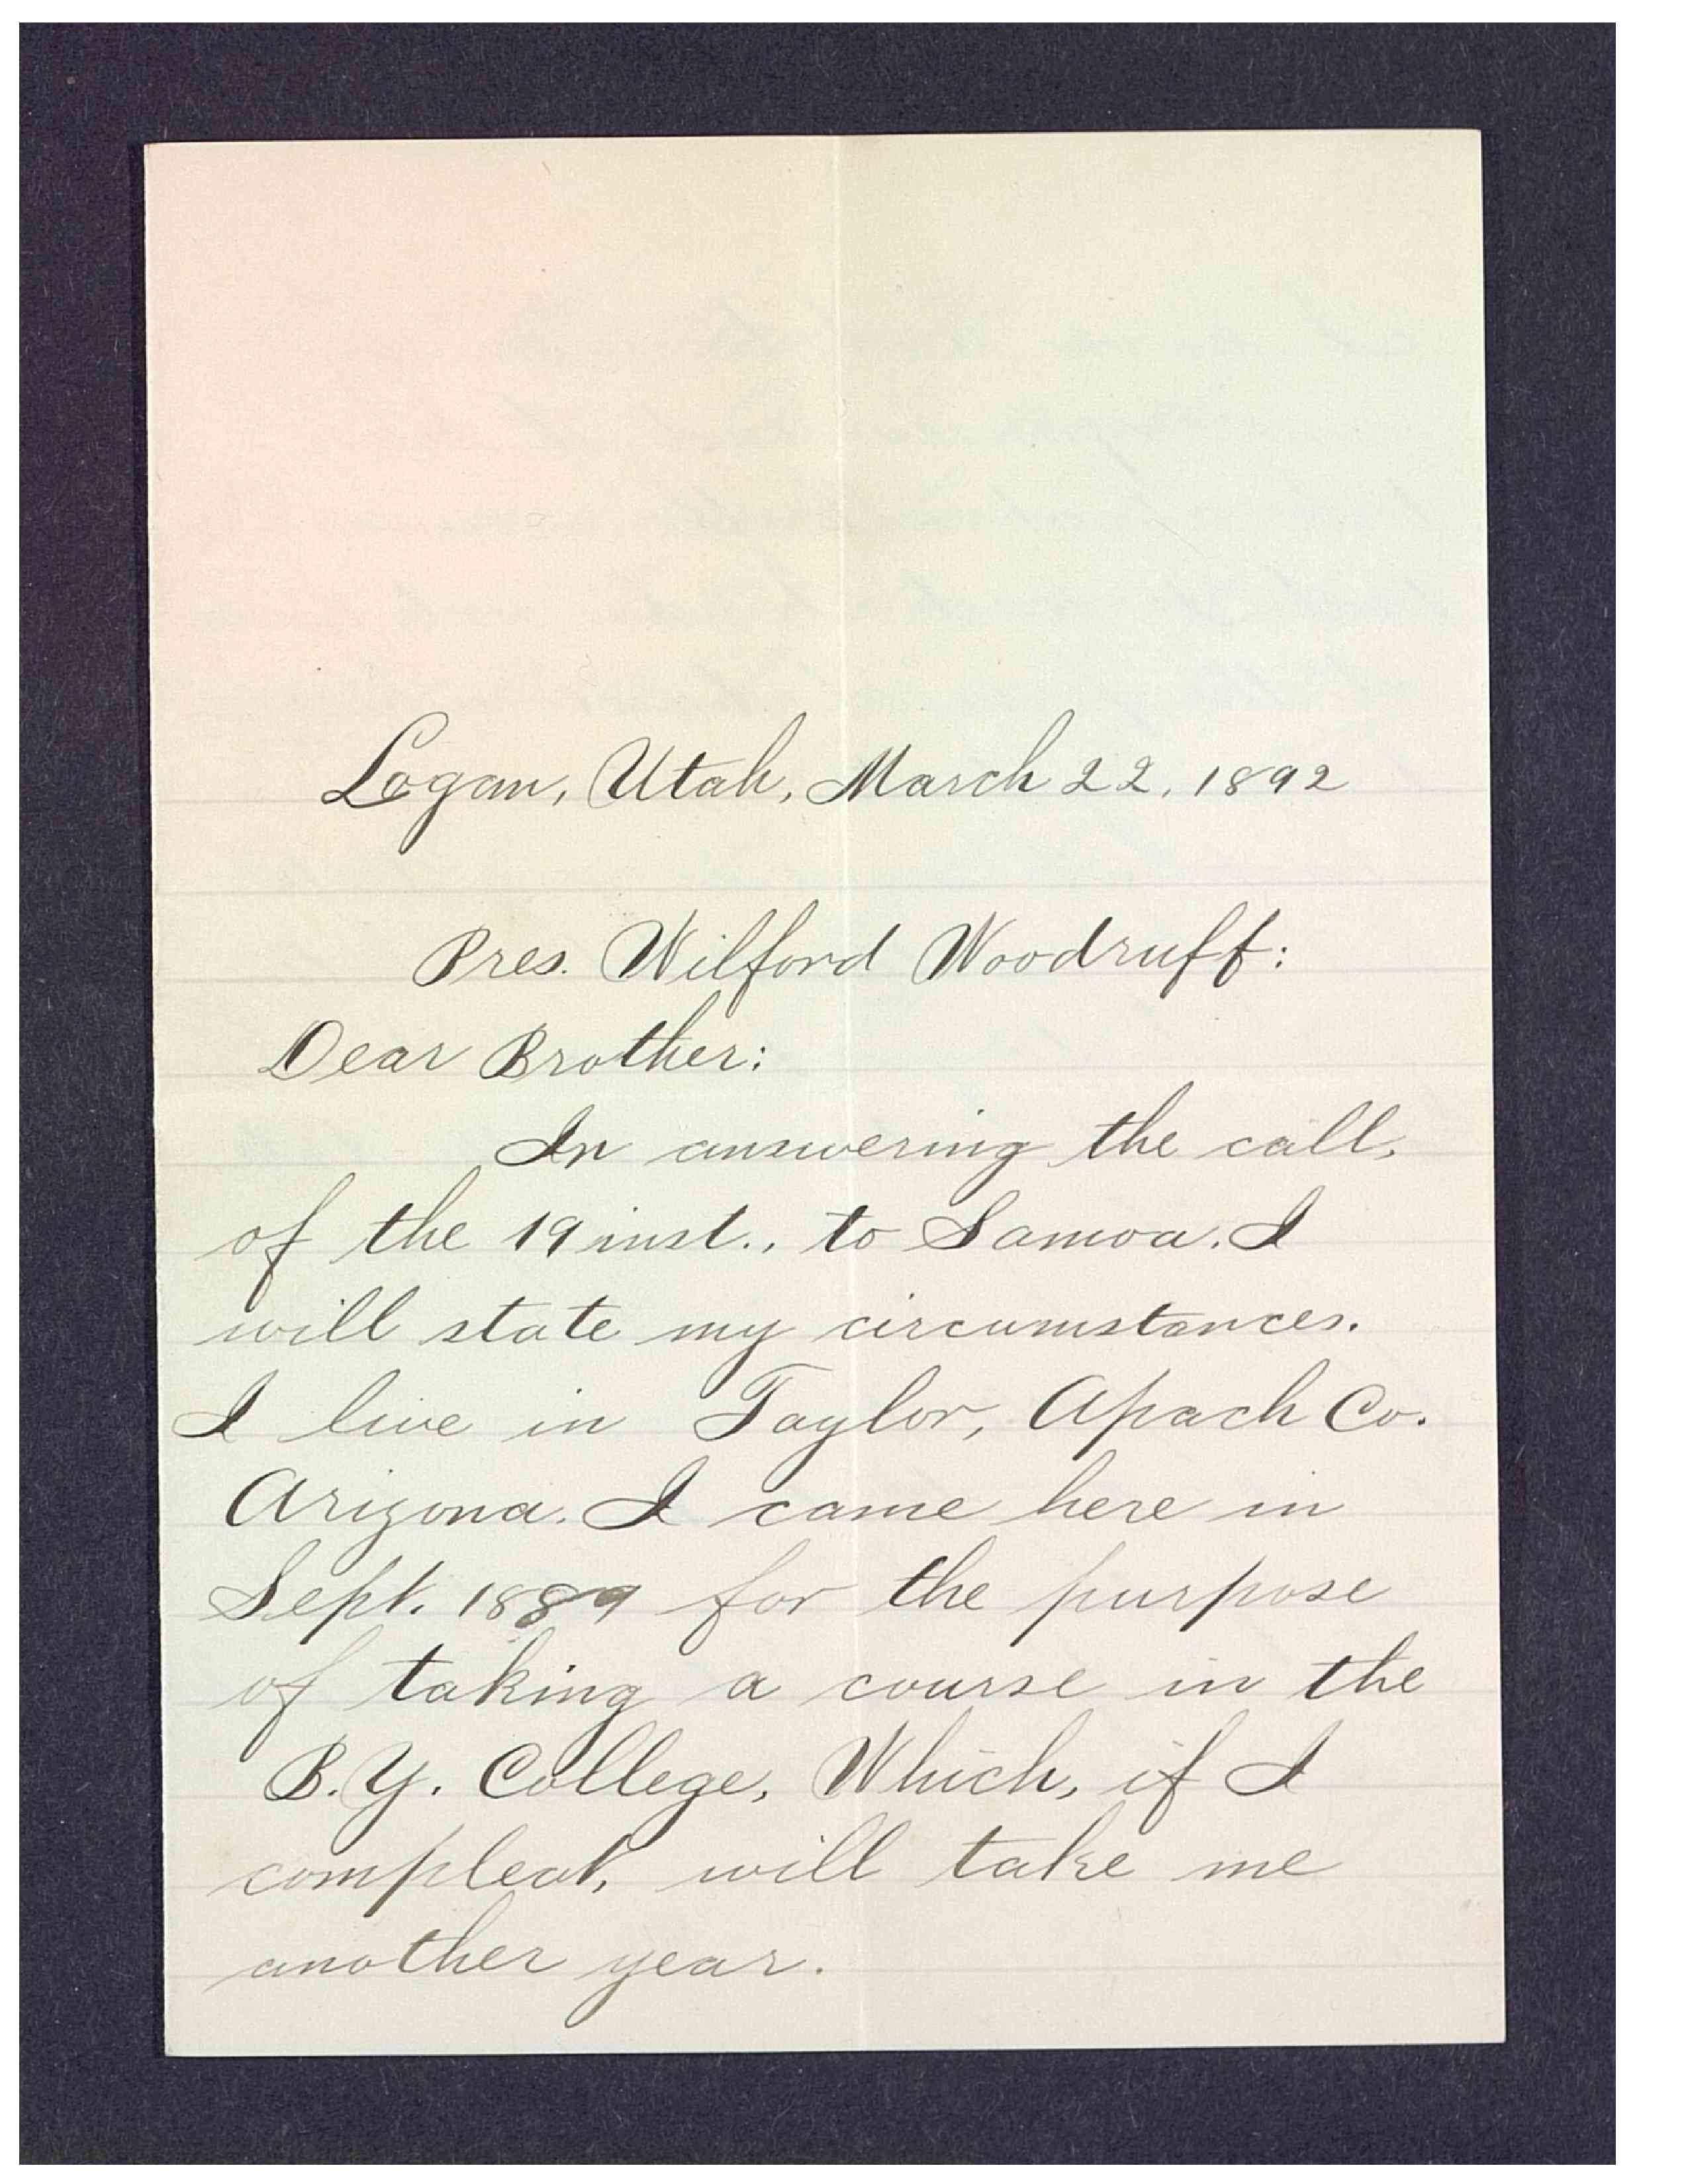 Logan, Utah, March 22, 1892
Pres. Wilford Woodruff:
Dear Brother:
In answering the call,
of the 19 inst., to Samoa. I
will state my circumstances.
I live in Taylor, Apach Co.
Arizona. I came here in
Sept. 1889 for the purpose
of taking a course in the
B.Y. College, Which, if I
compleat, will take me
another year.